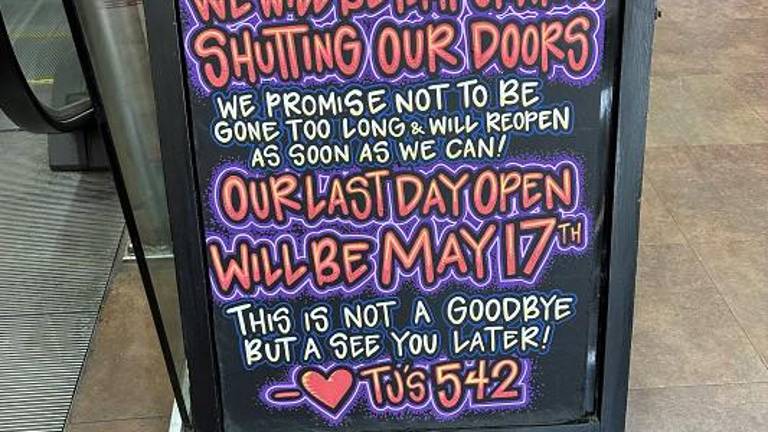 WE WILL BE TEMPORARILY
SHUTTING OUR DOORS
WE PROMISE NOT TO BE
GONE TOO LONG & WILL REOPEN
AS SOON AS WE CAN!
OUR LAST DAY OPEN
WILL BE MAY 17TH
THIS IS NOT A GOODBYE
BUT A SEE YOU LATER!
- ♥ TJ'S 542